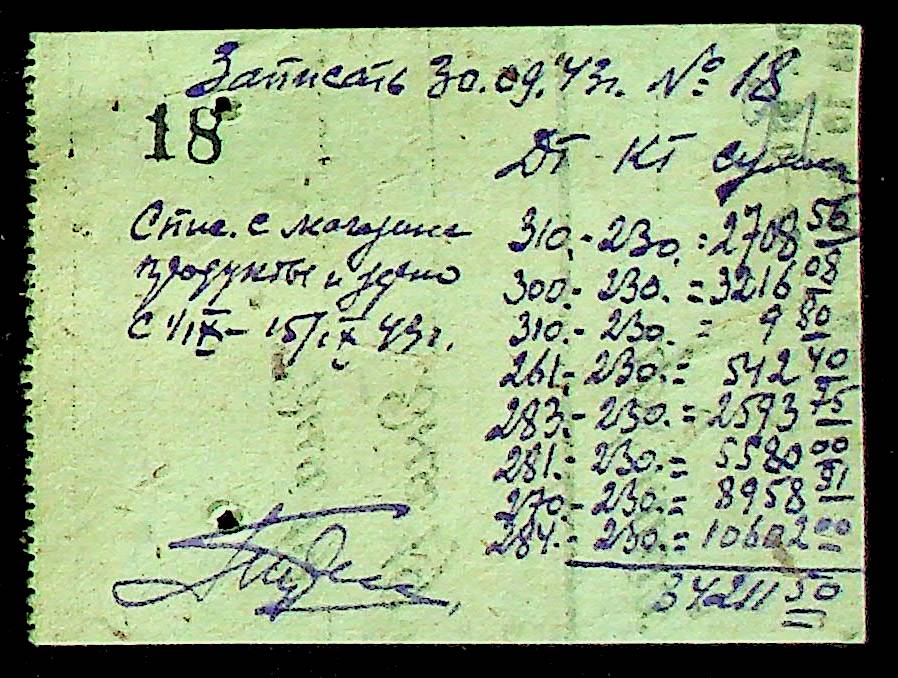 Записать 30.09.43г. № 18
18
Дт - Кт сумма
Спис. с магазина 310.- 230. = 2708 56
продукты и зерно 300.- 230. = 3216 08
с 1/IX – 15/IX 43г. 310.- 230. = 9 80
261.- 230. = 542 40
283.- 230. = 2593 75
281.- 230. = 5580 00
270.- 230. = 8958 91
284.- 230. = 10602 00
34211 50